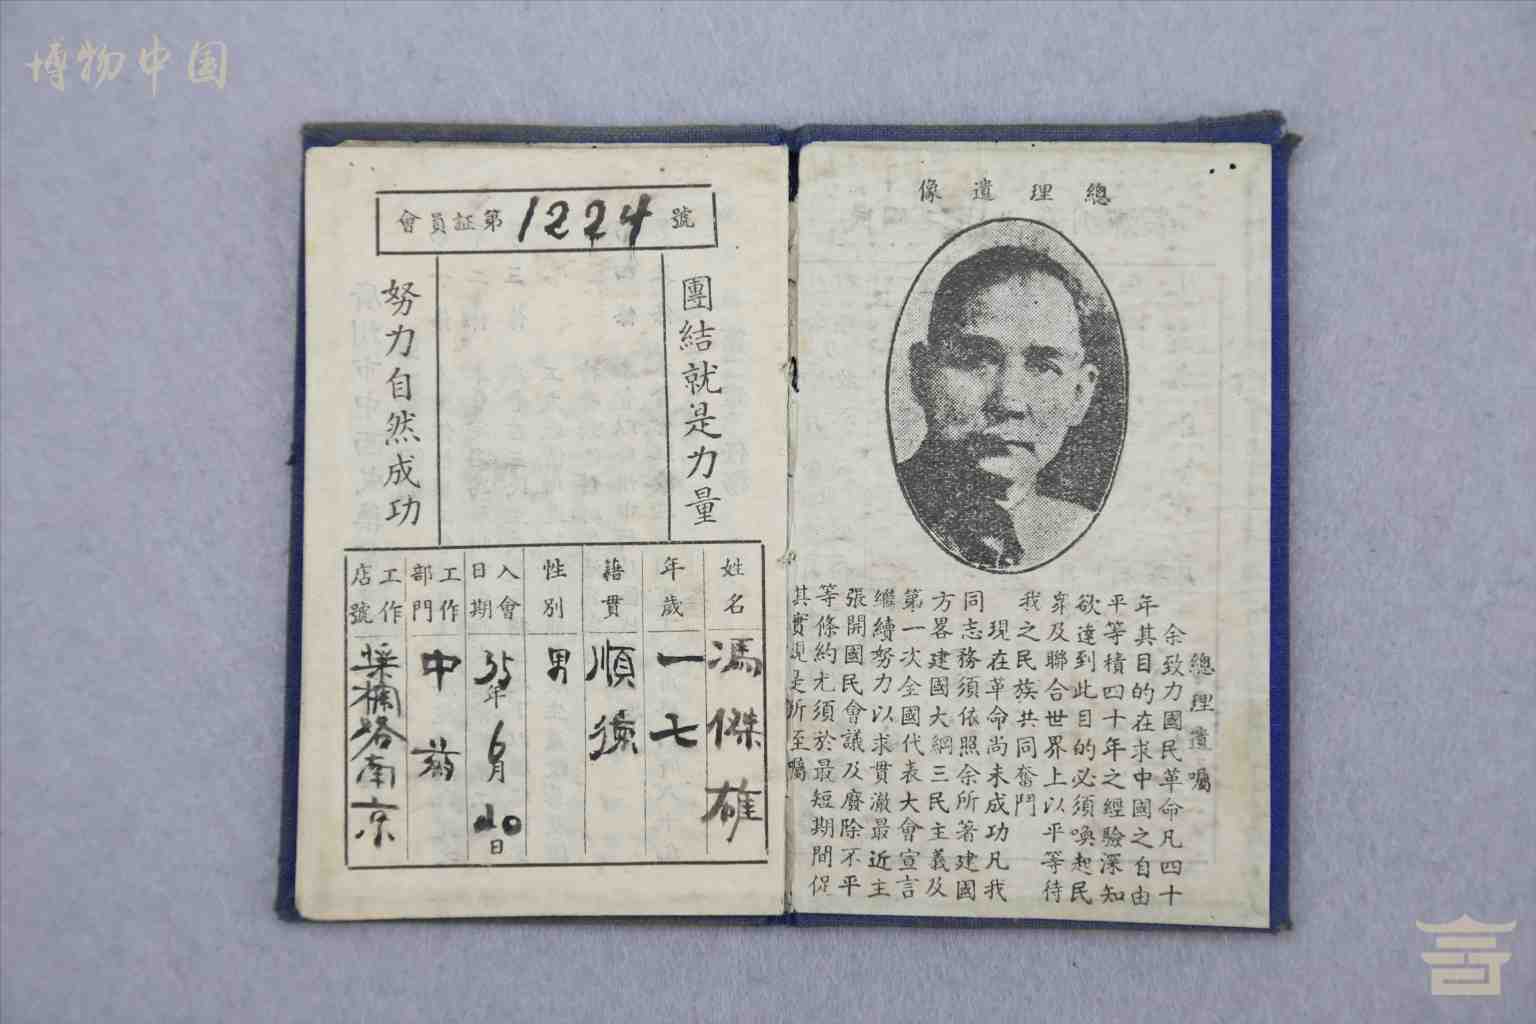 博物中国
會員証第1224號
團結就是力量
努力自然成功
姓名 馮傑雄
年歲 一七
籍貫 順德
性別 男
入會日期 35年6月20日
工作部門 中
工作店號 南京
總理遺像
總理遺囑
余致力國民革命凡四十
年其目的在求中國之自由
平等積四十年之經驗深知
欲達到此目的必須喚起民
眾及聯合世界上以平等待
我之民族共同奮鬥
現在革命尚未成功凡我
同志務須依照余所著建國
方畧建國大綱三民主義及
第一次全國代表大會宣言
繼續努力以求貫澈最近主
張開國民會議及廢除不平
等條約尤須於最短期間促
其實現是所至囑